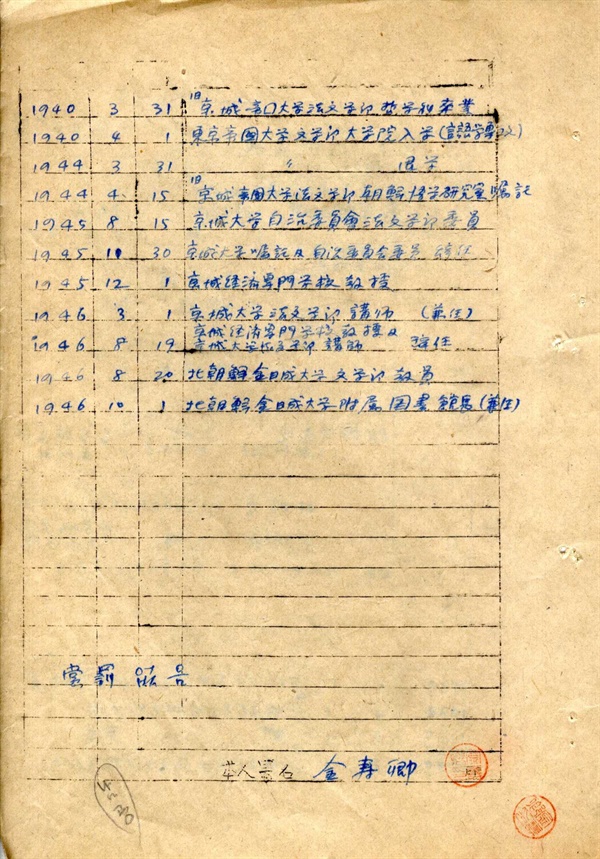 1940 3 31 旧京城帝国大学法文学部哲学科卒業
1940 4 1 東京帝國大学文学部大学院入学(言語学専攻)
1944 3 31 〃 退学
1944 4 15 旧京城帝国大学法文学部朝鮮語学研究室嘱託
1945 8 15 京城大学自治委員會法文学部委員
1945 11 30 京城大学嘱託及自治委員会委員 辞任
1945 12 1 京城経済専門学校教授
1946 3 1 京城大学法文学部講師 (兼任)
1946 8 19 京城経済専門学校教授及
京城大学法文学部講師 辞任
1946 8 20 北朝鮮金日成大学文学部教員
1946 10 1 北朝鮮金日成大学附属図書館長(兼任)
賞罰
本人署名 金寿卿